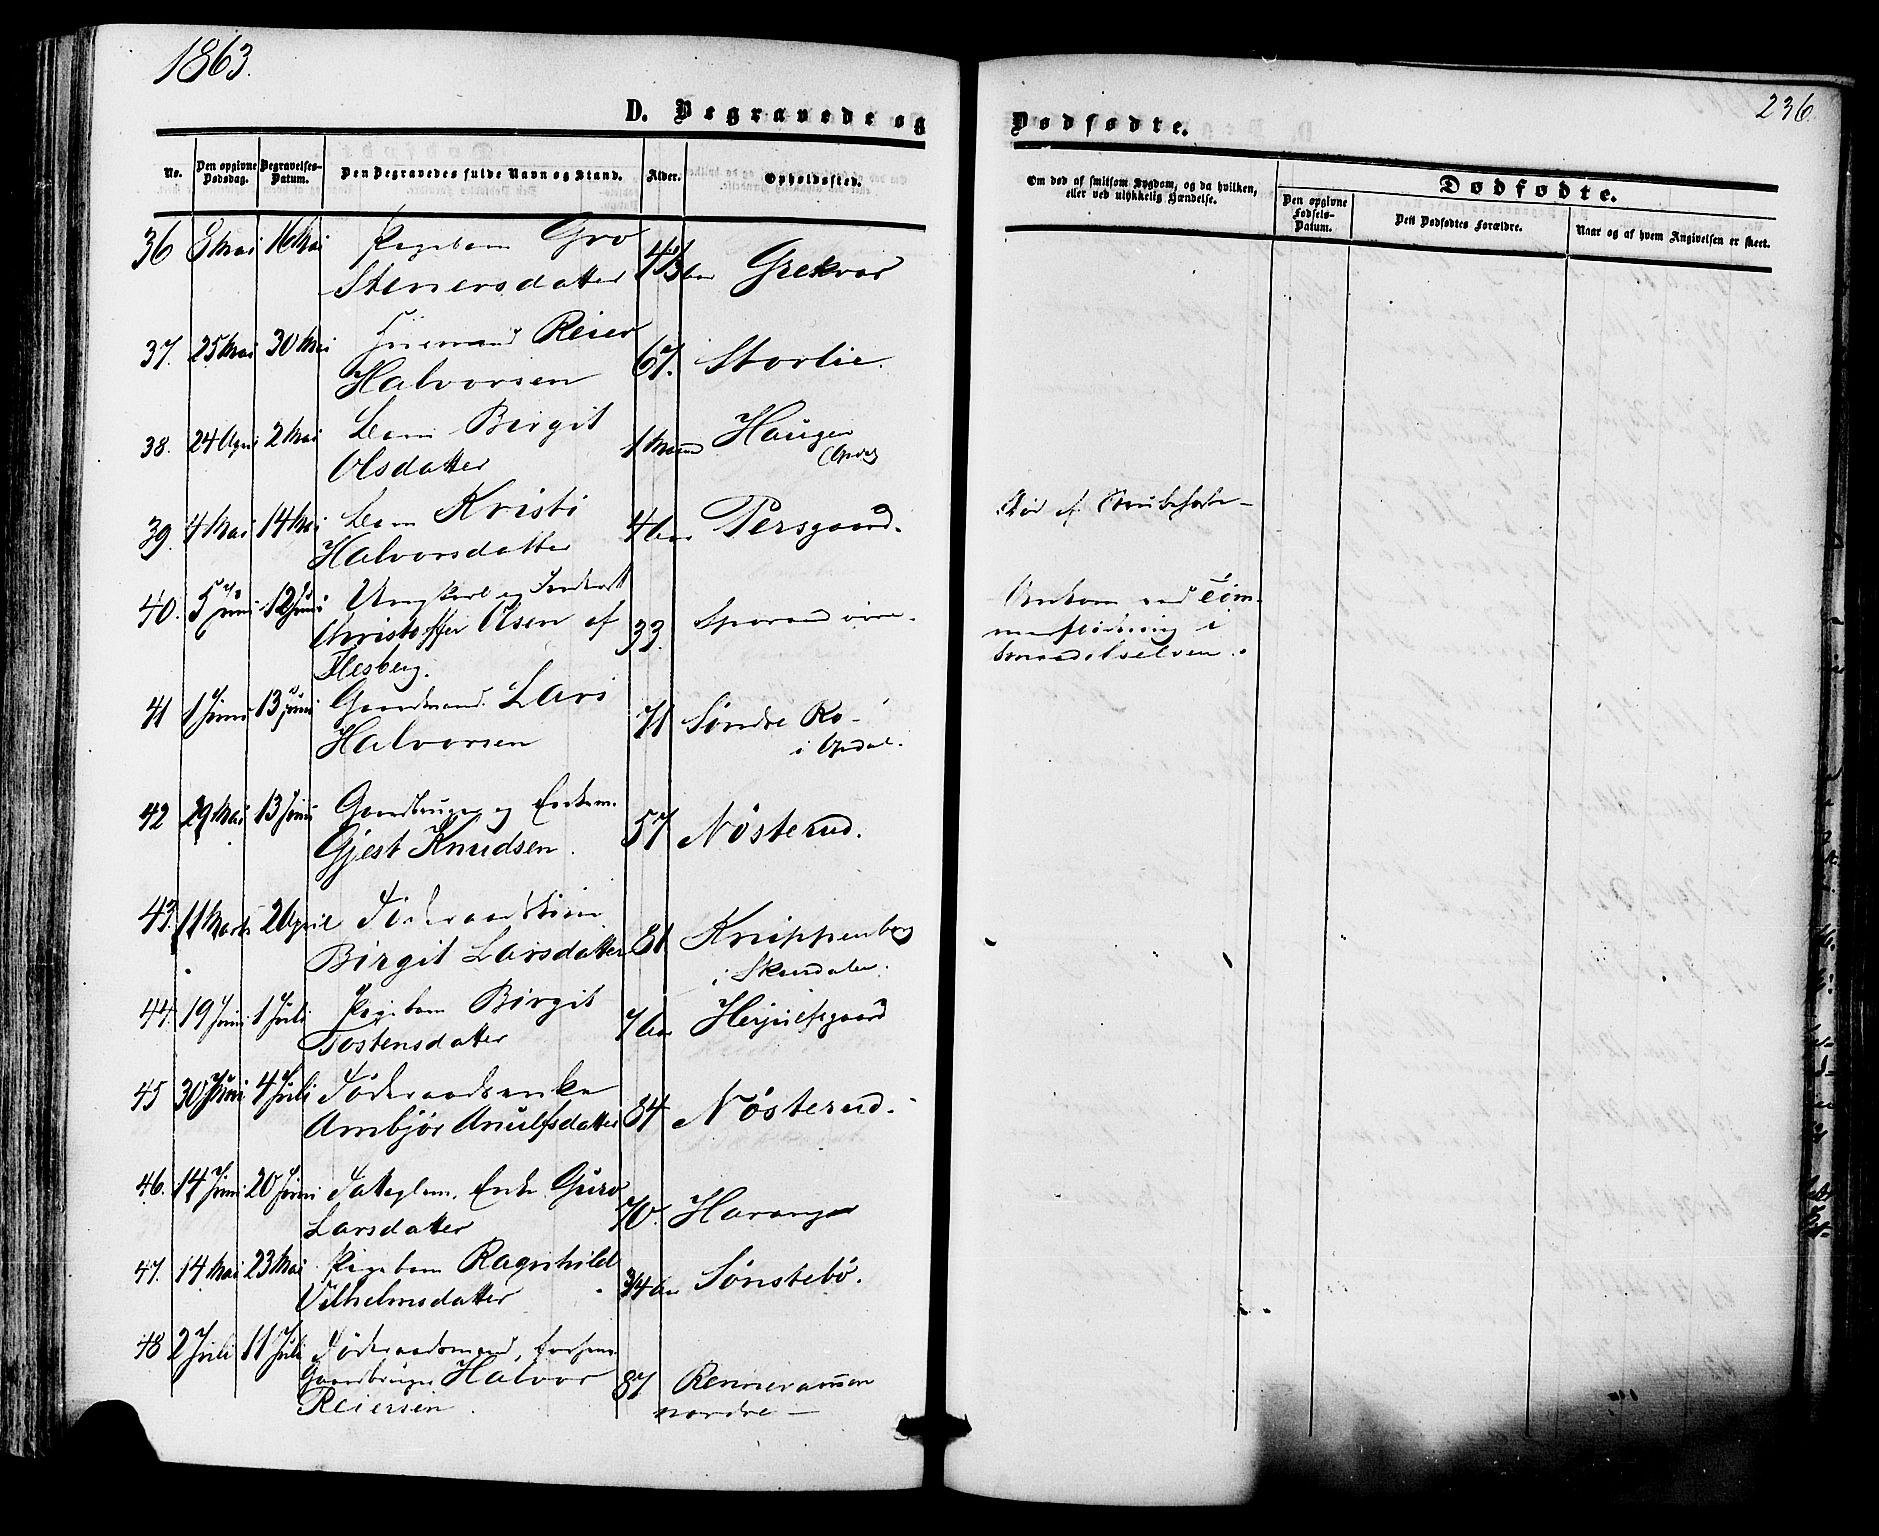 1863.
236.
D. Begravede og Dødfødte.
No.
Den opgivne Dødsdag.
Begravelses-Datum.
Den Begravedes fulde Navn og Stand.
Alder.
Opholdssted.
Om død af smitsom Sygdom, og da hvilken, eller ved ulykkelig Hændelse.
Dødfødte.
Den opgivne Fødsels-Datum.
Det Dødfødtes Forældre.
Naar og af hvem Angivelsen er skeet.
36 8 Mai 16 Mai Pigebarn Gro
Stenersdatter Grekvar
37. 25 Mai 30 Mai Reier
Halvorsen 67. Storlie.
38. 24 April 2 Mai Barn Birgit
Olsdatter 1 Maaned Haugen
(Opdal)
39. 4 Mai 14 Mai Barn Kristi
Halvorsdatter Persgaard. Død af Strubehoste
40. 5 Juni 12 Juni Ungkarl og
Christoffer Olsen af
Flesberg. 33.
Omkom ved Töm-
merflödning i
41 1 Juni 13 Juni Gaardmand Lars
Halvorsen 71 Söndre Ro
i Opdal.
42 29 Mai 13 Juni Gaardbruger og Enkem.
Gjest Knudsen. 57 Nösterud.
43. 11 Marts 2 April
Birgit Larsdatter 81 Knippenberg
i Skurdalen.
44. 19 Juni 1 Juli Pigebarn Birgit
Tostensdatter Herjulfsgaard
45 30 Juni 4 Juli Föderaadsenke
Arnbjør Anulfsdatter 84 Nösterud.
46. 14 Juni 20 Juni Enke Guro
Larsdatter 70.
47. 14 Mai 23 Mai Pigebarn Ragnhild
Vilhelmsdatter Sönstebö.
48 2 Juli 11 Juli Föderaadsmand, forhen
Gaardbruger Halvor
Reiersen. 87
nordre